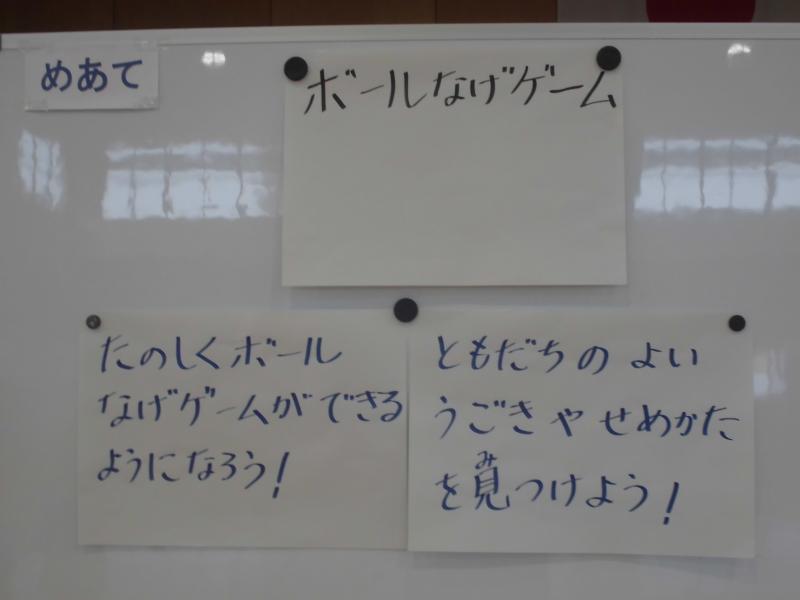 めあて
ボールなげゲーム
たのしくボール
なげゲームができる
ようになろう!
ともだちの よい
うごきや せめかた
を見つけよう!
み